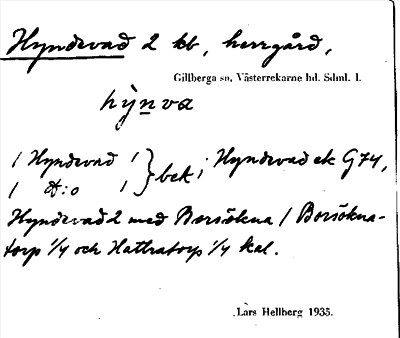 Hyndevad 2 kb, herrgård,
Gillberga sn, Västerrekarne hd. Sdml. l.
hỳnva
/ Hyndevad / } bek; Hyndevad ek G 74,
/ d:o /
Hyndevad 2 med Borsökna / Borsökna-
torp 1/4 och Hattratorp 1/4 kal.
Lars Hellberg 1935.